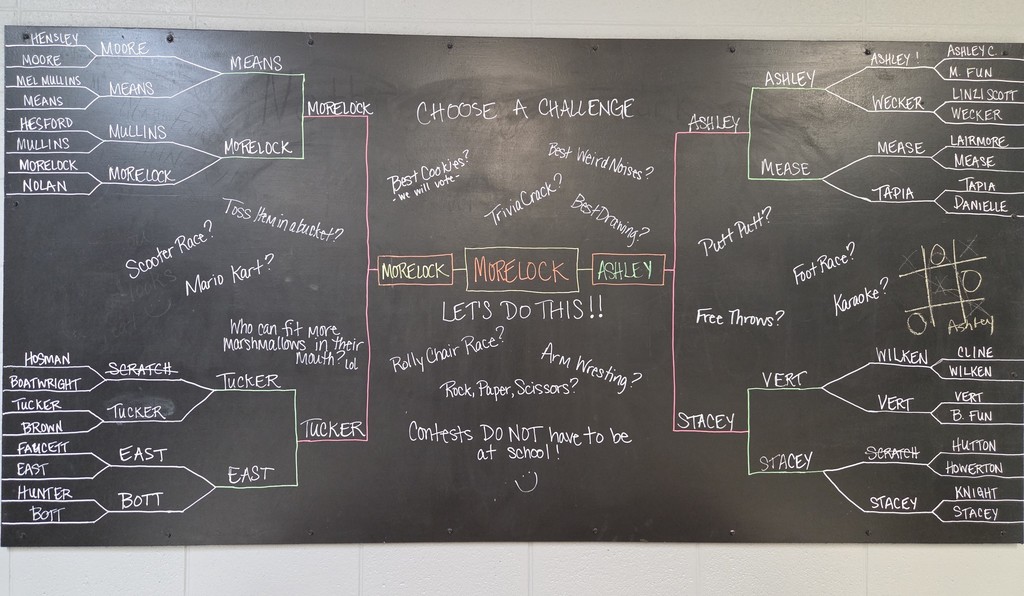 HENSLEY
MOORE
MOORE
MEL MULLINS
MEANS
MEANS
MEANS
HESFORD
MULLINS
MULLINS
MORELOCK
NOLAN
MORELOCK
MORELOCK
MORELOCK
HOSMAN
BOATWRIGHT
SCRATCH
TUCKER
BROWN
TUCKER
TUCKER
FAUCETT
EAST
EAST
HUNTER
BOTT
BOTT
EAST
TUCKER
MORELOCK
CHOOSE A CHALLENGE
Best Cookies?
- we will vote -
Best Weird Noises?
Trivia Crack?
Best Drawing?
Toss item in a bucket?
Scooter Race?
Mario Kart?
Who can fit more
marshmallows in their
mouth? lol
MORELOCK
LET'S DO THIS!!
Rolly Chair Race?
Arm Wresting?
Rock, Paper, Scissors?
Contests DO NOT have to be
at school!
Putt Putt?
Foot Race?
Karaoke?
Free Throws?
O X
X X O
O Ashley
ASHLEY
ASHLEY
ASHLEY
ASHLEY !
ASHLEY C.
M. FUN
WECKER
LINZI SCOTT
WECKER
MEASE
MEASE
LAIRMORE
MEASE
TAPIA
TAPIA
DANIELLE
STACEY
VERT
WILKEN
CLINE
WILKEN
VERT
VERT
B. FUN
STACEY
SCRATCH
HUTTON
HOWERTON
STACEY
KNIGHT
STACEY